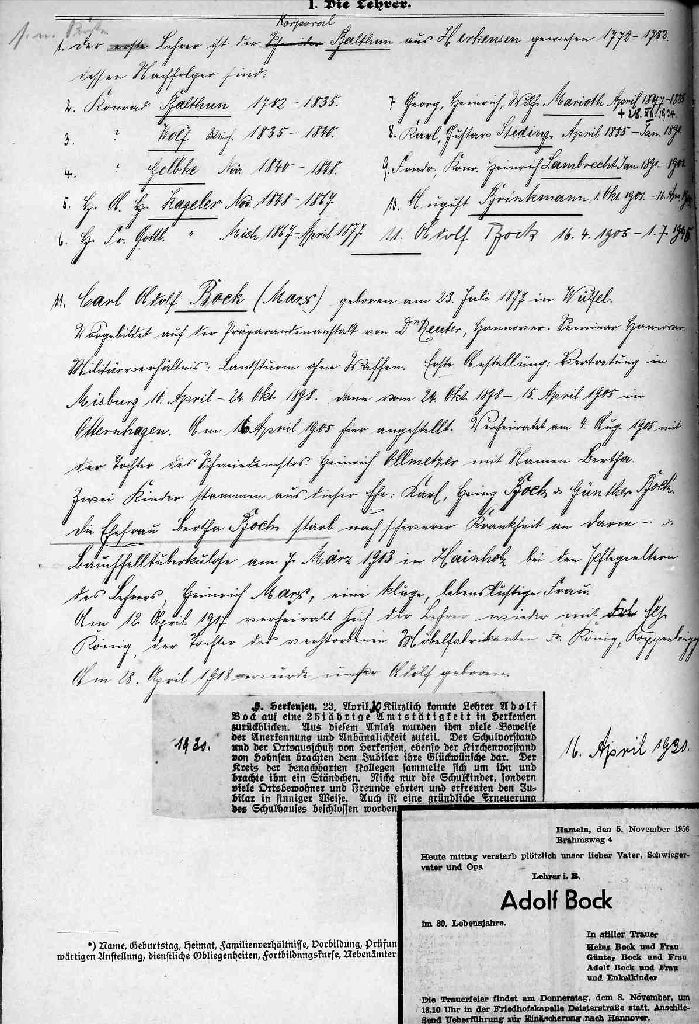 I. Die Lehrer.
Korporal
1. Der erste Lehrer ist der Balthun aus Herkensen gewesen 1770-1782
dessen Nachfolger sind:
2. Konrad Balthun 1782-1835.
3. " Wolf 1835-1840.
4. " Gelbke 1840-1848.
5. H. A. H. Hageler 1848-1867
6. H. Fr. Gottl. " Mich 1867-April 1877
7. Georg, Heinrich, Wilh. Marioth April
8. Karl, Gustav Steding, April
9. Konr. Heinrich Lambrecht Jan 1891-
10. August Brinkmann 1. Okt 1901-
11. Adolf Bock 16.4.1905-1.7.
11. Carl Adolf Bock (Marx) geboren am 23. Juli 1877 in Wülfel.
Vorgebildet auf der Präparandenanstalt von Dr Reuter, Hannover. Seminar Hannover
Militärverhältnis: Landsturm ohne Waffen. Erste Anstellung: Vertretung in
Misburg 11. April-24. Okt. 1898. dann vom 24. Okt 1898-15. April 1905 in
Otternhagen. Am 16 April 1905 hier angestellt. Verheiratet am 4. Aug. 1905 mit
der Tochter des Heinrich Ollmetzer mit Namen Bertha.
Zwei Kinder stammen aus dieser Ehe. Karl, Heinz Bock & Günther Bock.
Die Ehefrau Bertha Bock starb nach schwerer Krankheit an Darm- &
Bauchfelltuberkulose am 7. März 1913 in Hainholz bei den Pflegeeltern
des Lehrers, Heinrich Marx, eine kluge, lebenslustige Frau
Am 12. April 1917 verheiratet sich der Lehrer wieder mit
König, der Tochter des verstorbenen Möbelfabrikanten König, Koppenbrügge
Am 28. April 1918 wurde unser Adolf geboren
1930.
S. Herkensen, 23. April. Kürzlich konnte Lehrer Adolf
Bock auf eine 25jährige Amtstätigkeit in Herkensen
zurückblicken. Aus diesem Anlaß wurden ihm viele Beweise
der Anerkennung und Anhänglichkeit zuteil. Der Schulvorstand
und der Ortsausschuß von Herkensen, ebenso der Kirchenvorstand
von Hohnsen brachten dem Jubilar ihre Glückwünsche dar. Der
Kreis der benachbarten Kollegen sammelte sich um ihn und
brachte ihm ein Ständchen. Nicht nur die Schulkinder, sondern
viele Ortsbewohner und Freunde ehrten und erfreuten den Ju-
bilar in sinniger Weise. Auch ist eine gründliche Erneuerung
des Schulhauses beschlossen worden
16. April 1930.
Hameln, den 5. November 1956
Brahmsweg 4
Heute mittag verstarb plötzlich unser lieber Vater, Schwieger-
vater und Opa
Lehrer i. R.
Adolf Bock
im 80. Lebensjahre.
In stiller Trauer
Heinz Bock und Frau
Günter Bock und Frau
Adolf Bock und Frau
und Enkelkinder
Die Trauerfeier findet am Donnerstag, dem 8. November, um
18.10 Uhr in der Friedhofskapelle Deisterstraße statt. Anschlie-
ßend Ueberführung zur Einäscherung nach Hannover.
*) Name, Geburtstag, Heimat, Familienverhältnisse, Vorbildung, Prüfun
wärtigen Anstellung, dienstliche Obliegenheiten, Fortbildungskurse, Nebenämter